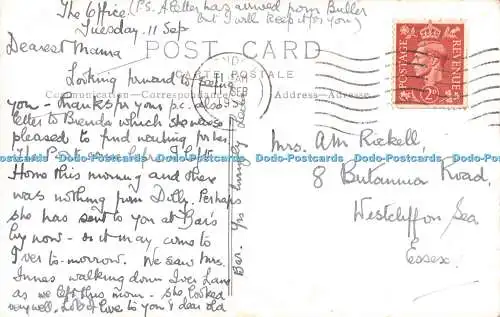 The Office (P.S. A letter has arrived from Butler
but I will keep it for you)
Tuesday 11 Sep
Dearest Mama
POST CARD
CARTE POSTALE
Communication - Correspondance
Address - Adresse
Looking forward to seeing
you - Thanks for your p.c. also
letter to Brenda which she was
pleased to find waiting for her.
The Post came before I left
Home this morning and there
was nothing from Dolly. Perhaps
she has sent to you at Bar's
by now - or it may come to
Iver to-morrow. We saw Mrs.
Innes walking down Iver Lane
as we left this morn - she looked
very well. Lots of love to you & dear old
Bar. Yrs lovingly
POSTAGE REVENUE
2D
Mrs. A M Rickell,
8 Britannia Road,
Westcliff on Sea
Essex.
Dodo-Postcards Dodo-Postcards Dodo-Postcards Dodo-Postcards Dodo-Postcards